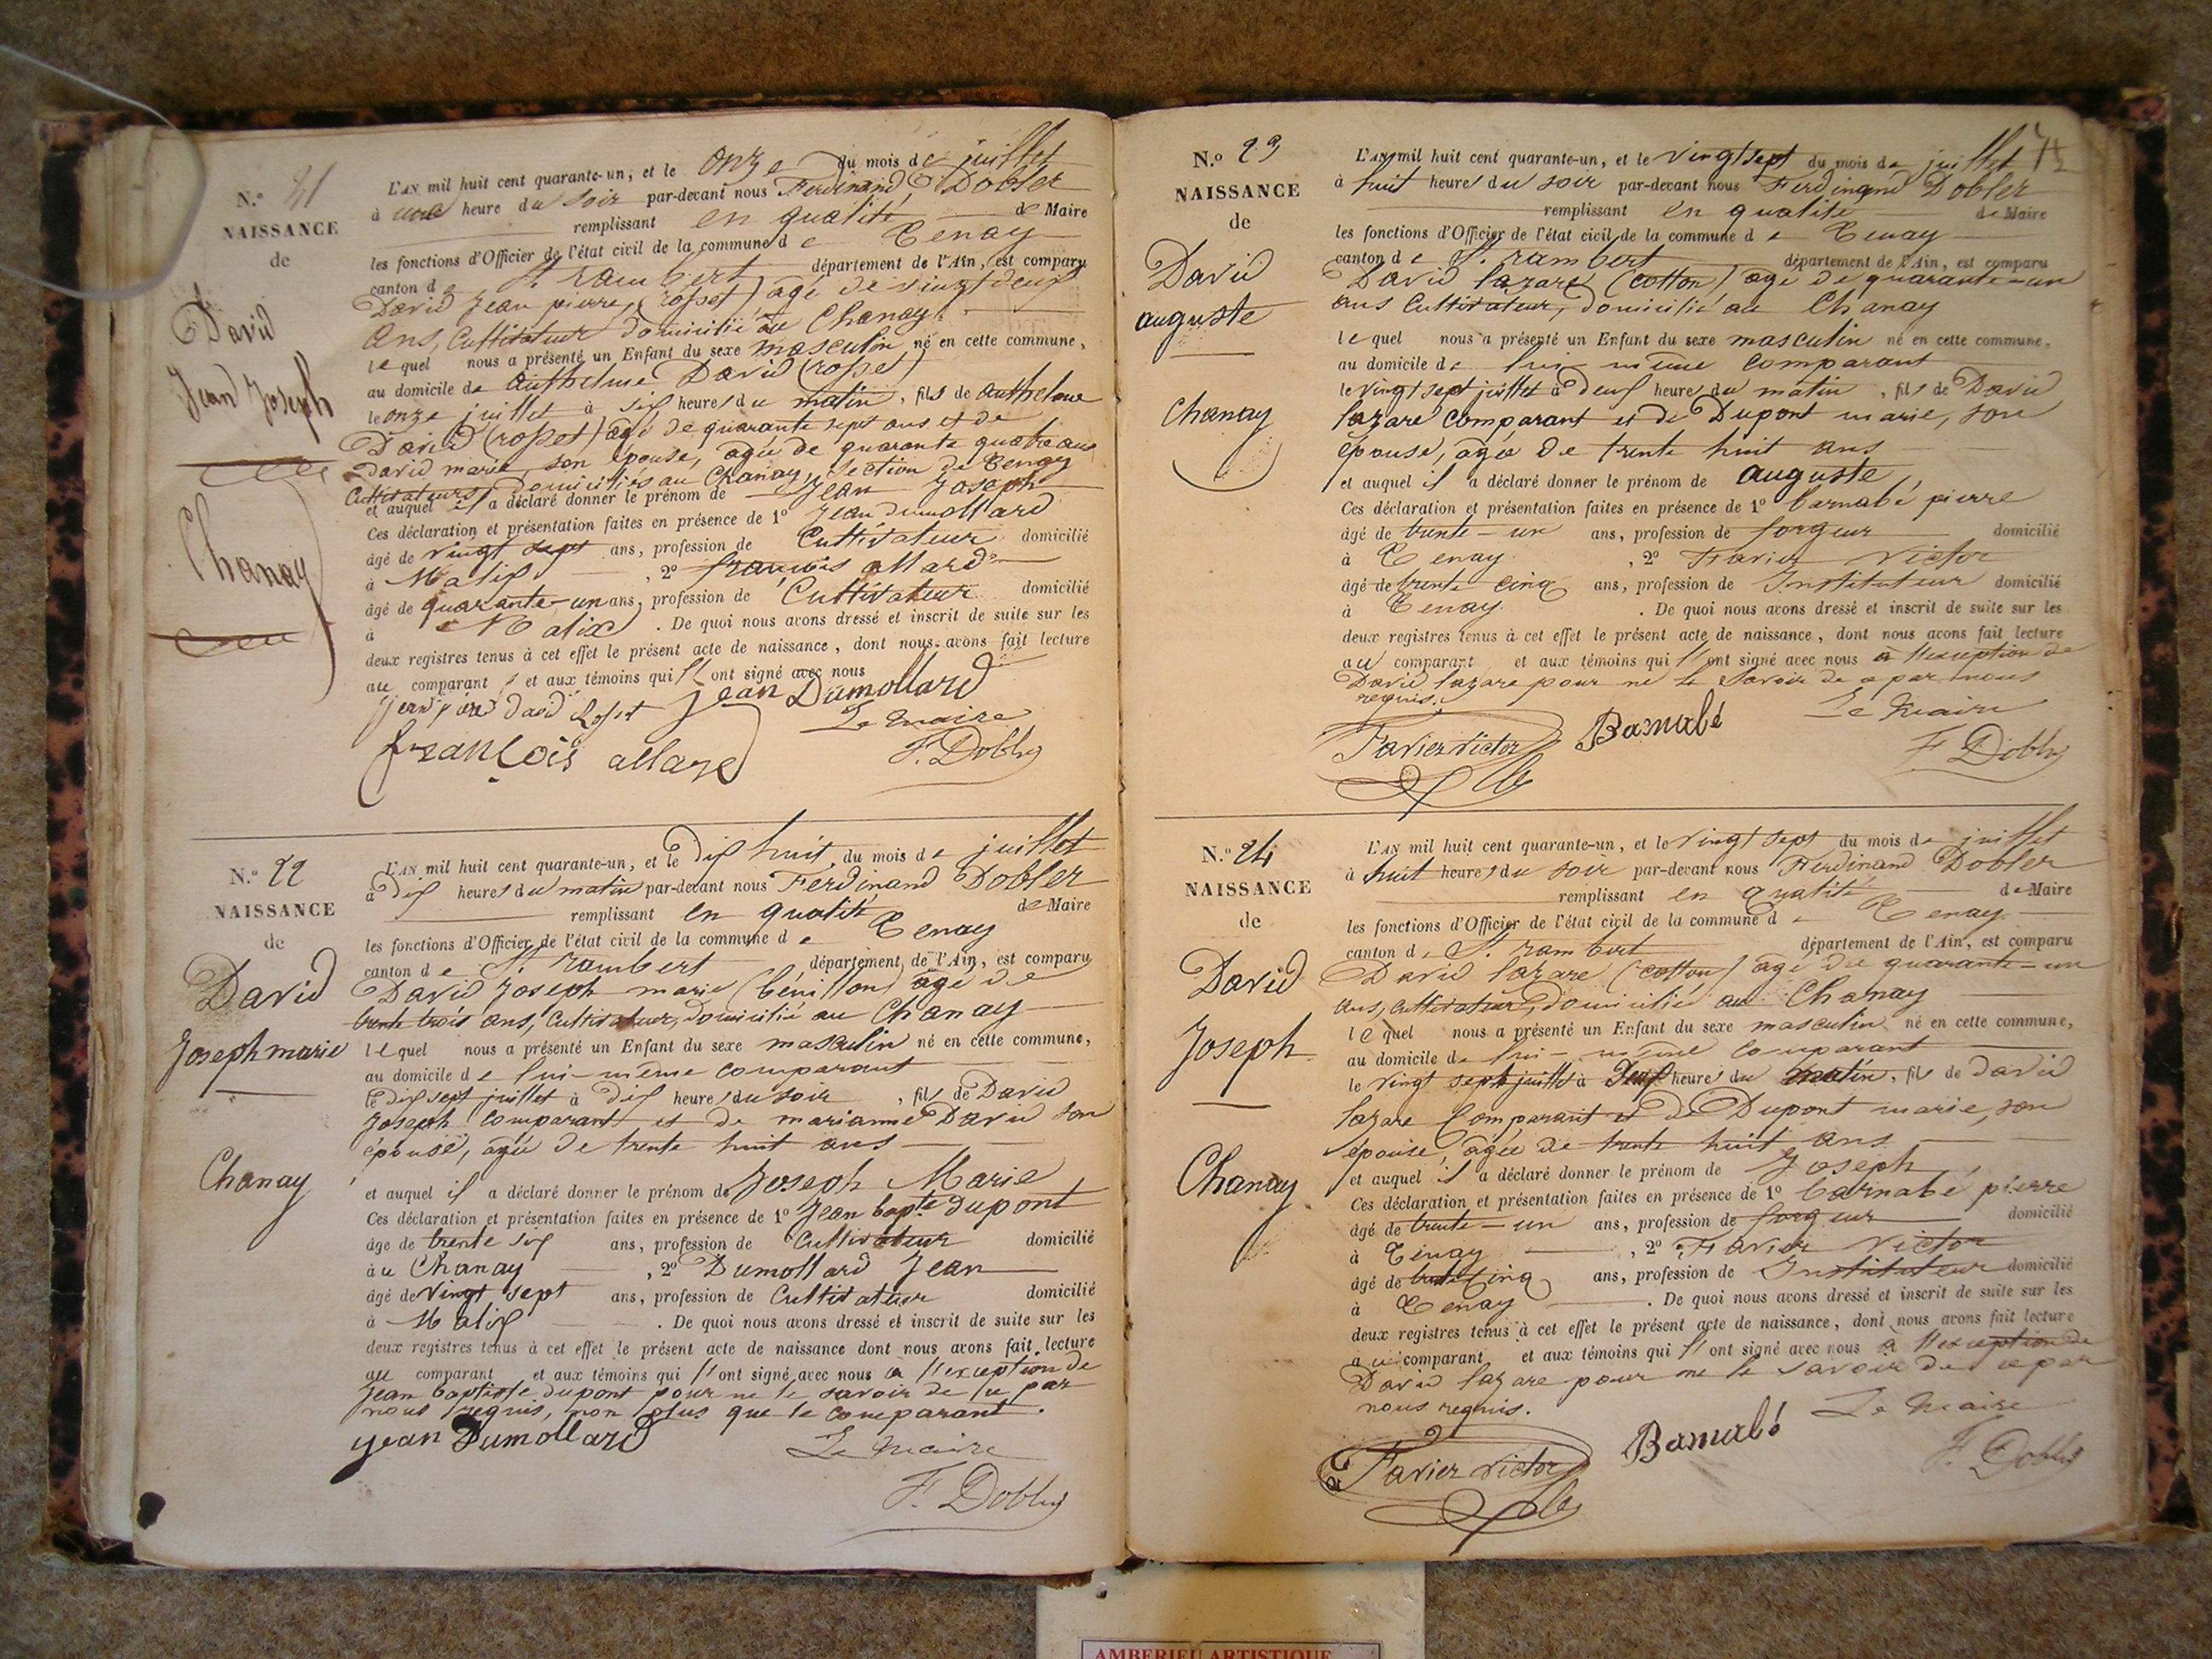 N.o 21
NAISSANCE
de
David
Jean Joseph
Chanay
L'AN mil huit cent quarante-un, et le onze du mois de juillet
à une heure du soir par-devant nous Ferdinand Dobler
remplissant en qualité de Maire
les fonctions d'Officier de l'état civil de la commune de Tenay
canton de St. rambert département de l'Ain, est comparu
David Jean pierre, (rosset) agé de vingt deux
ans, Cultivateur domicilié au Chanay.
lequel nous a présenté un Enfant du sexe masculin né en cette commune,
au domicile de authelme David (rosset)
le onze juillet à six heures du matin, fils de authelme
David (rosset) agé de quarante sept ans et de
David marie, son épouse, agée de quarante quatre ans
Cultivateurs, domiciliés au Chanay, section de Tenay
et auquel il a déclaré donner le prénom de Jean Joseph
Ces déclaration et présentation faites en présence de 1o Jean dumollard
âgé de vingt sept ans, profession de Cultivateur domicilié
à Malix , 2o françois allard
âgé de quarante-un ans, profession de Cultivateur domicilié
à Malix . De quoi nous avons dressé et inscrit de suite sur les
deux registres tenus à cet effet le présent acte de naissance, dont nous avons fait lecture
au comparant et aux témoins qui l'ont signé avec nous
jean piere david Roset jean Dumollard
Le maire
françois allard F. Dobler
N.o 22
NAISSANCE
de
David
Joseph marie
Chanay
L'AN mil huit cent quarante-un, et le dix huit du mois de juillet
à dix heures du matin par-devant nous Ferdinand Dobler
remplissant en qualité de Maire
les fonctions d'Officier de l'état civil de la commune de Tenay
canton de St. rambert département de l'Ain, est comparu
David Joseph marie (bénillon) agé de
trente trois ans, Cultivateur, domicilié au Chanay
lequel nous a présenté un Enfant du sexe masculin né en cette commune,
au domicile de lui-même comparant
le dix sept juillet à dix heures du soir , fils de David
Joseph comparant et de marianne David son
épouse, agée de trente huit ans
et auquel il a déclaré donner le prénom de Joseph Marie
Ces déclaration et présentation faites en présence de 1o Jean bapte dupont
âge de trente six ans, profession de Cultivateur domicilié
au Chanay , 2o Dumollard Jean
âgé de Vingt sept ans, profession de Cultivateur domicilié
à Malix . De quoi nous avons dressé et inscrit de suite sur les
deux registres tenus à cet effet le présent acte de naissance dont nous avons fait lecture
au comparant et aux témoins qui l'ont signé avec nous a l'exception de
Jean baptiste dupont pour ne le savoir de ce par
nous requis, non plus que le comparant.
jean Dumollard Le maire
F. Dobler
N.o 23
NAISSANCE
de
David
auguste
Chanay
L'AN mil huit cent quarante-un, et le Vingt sept du mois de juillet
à huit heures du soir par-devant nous Ferdinand Dobler
remplissant en qualité de Maire
les fonctions d'Officier de l'état civil de la commune de Tenay
canton de St. rambert département de l'Ain, est comparu
David lazare (cotton) agé de quarante-un
ans Cultivateur, domicilié au Chanay
lequel nous a présenté un Enfant du sexe masculin né en cette commune,
au domicile de lui-même comparant
le vingt sept juillet à deux heures du matin , fils de David
lazare comparant et de Dupont marie, son
épouse, agée de trente huit ans
et auquel il a déclaré donner le prénom de auguste
Ces déclaration et présentation faites en présence de 1o barnabé pierre
âgé de trente-un ans, profession de forgeur domicilié
à Tenay , 2o Favier Victor
âgé de trente cinq ans, profession de Instituteur domicilié
à Tenay . De quoi nous avons dressé et inscrit de suite sur les
deux registres tenus à cet effet le présent acte de naissance, dont nous avons fait lecture
au comparant et aux témoins qui l'ont signé avec nous à l'exception de
David lazare pour ne le Savoir de ce par nous
requis.
Favier Victor Barnabé Le Maire
F. Dobler
N.o 24
NAISSANCE
de
David
Joseph
Chanay
L'AN mil huit cent quarante-un, et le Vingt sept du mois de juillet
à huit heures du soir par-devant nous Ferdinand Dobler
remplissant en qualité de Maire
les fonctions d'Officier de l'état civil de la commune de Tenay
canton de St. rambert département de l'Ain, est comparu
David lazare (cotton) agé de quarante-un
ans, cultivateur, domicilié au Chanay
lequel nous a présenté un Enfant du sexe masculin né en cette commune,
au domicile de lui-même comparant
le Vingt sept juillet à deux heures du matin, fils de david
lazare Comparant et de Dupont marie, son
épouse, agée de trente huit ans
et auquel il a déclaré donner le prénom de Joseph
Ces déclaration et présentation faites en présence de 1o barnabé pierre
âgé de trente-un ans, profession de forgeur domicilié
à Tenay , 2o Favier Victor
âgé de trente cinq ans, profession de Instituteur domicilié
à Tenay . De quoi nous avons dressé et inscrit de suite sur les
deux registres tenus à cet effet le présent acte de naissance, dont nous avons fait lecture
au comparant et aux témoins qui l'ont signé avec nous à l'exception de
David lazare pour ne le savoir de ce par
nous requis.
Favier Victor Barnabé Le Maire
F. Dobler
AMBERIEU ARTISTIQUE